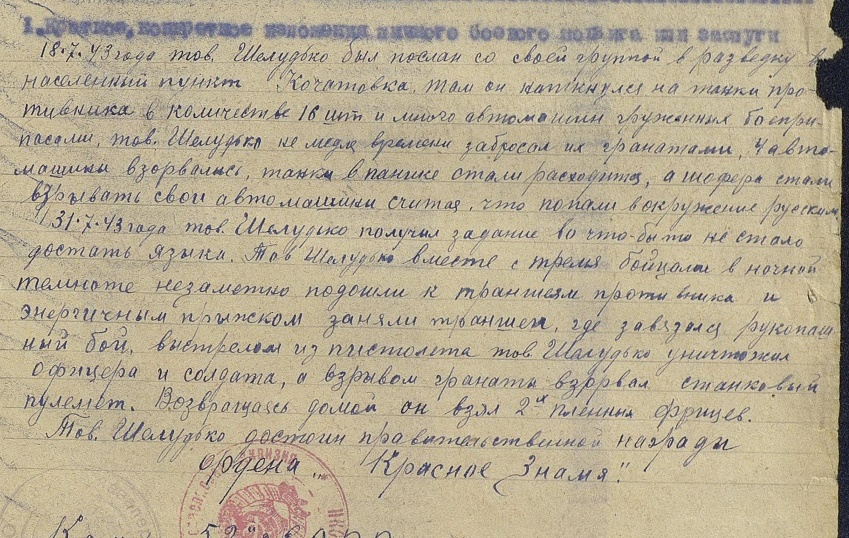 1. Краткое, конкретное изложения личного боевого подвига или заслуги
18.7.43 года тов. Шелудько был послан со своей группой в разведку в
населенный пункт Кочатовка. Там он наткнулся на танки про-
тивника в количестве 16 шт и много автомашин груженных боепри-
пасами, тов. Шелудько не медля времени забросал их гранатами, 4 авто-
машины взорвались, танки в панике стали расходится, а шофера стали
взрывать свои автомашины считая, что попали в окружение русским.
31.7.43 года тов. Шелудько получил задание во что-бы то не стало
достать языка. Тов Шелудько вместе с тремя бойцами в ночной
темноте незаметно подошли к траншеям противника и
энергичным прыжком заняли траншеи, где завязался рукопаш-
ный бой, выстрелом из пистолета тов. Шелудько уничтожил
офицера и солдата, а взрывом гранаты взорвал станковый
пулемет. Возвращаясь домой он взял 2х пленных фрицев.
Тов. Шелудько достоин правительственной награди
ордена „Красное Знамя".